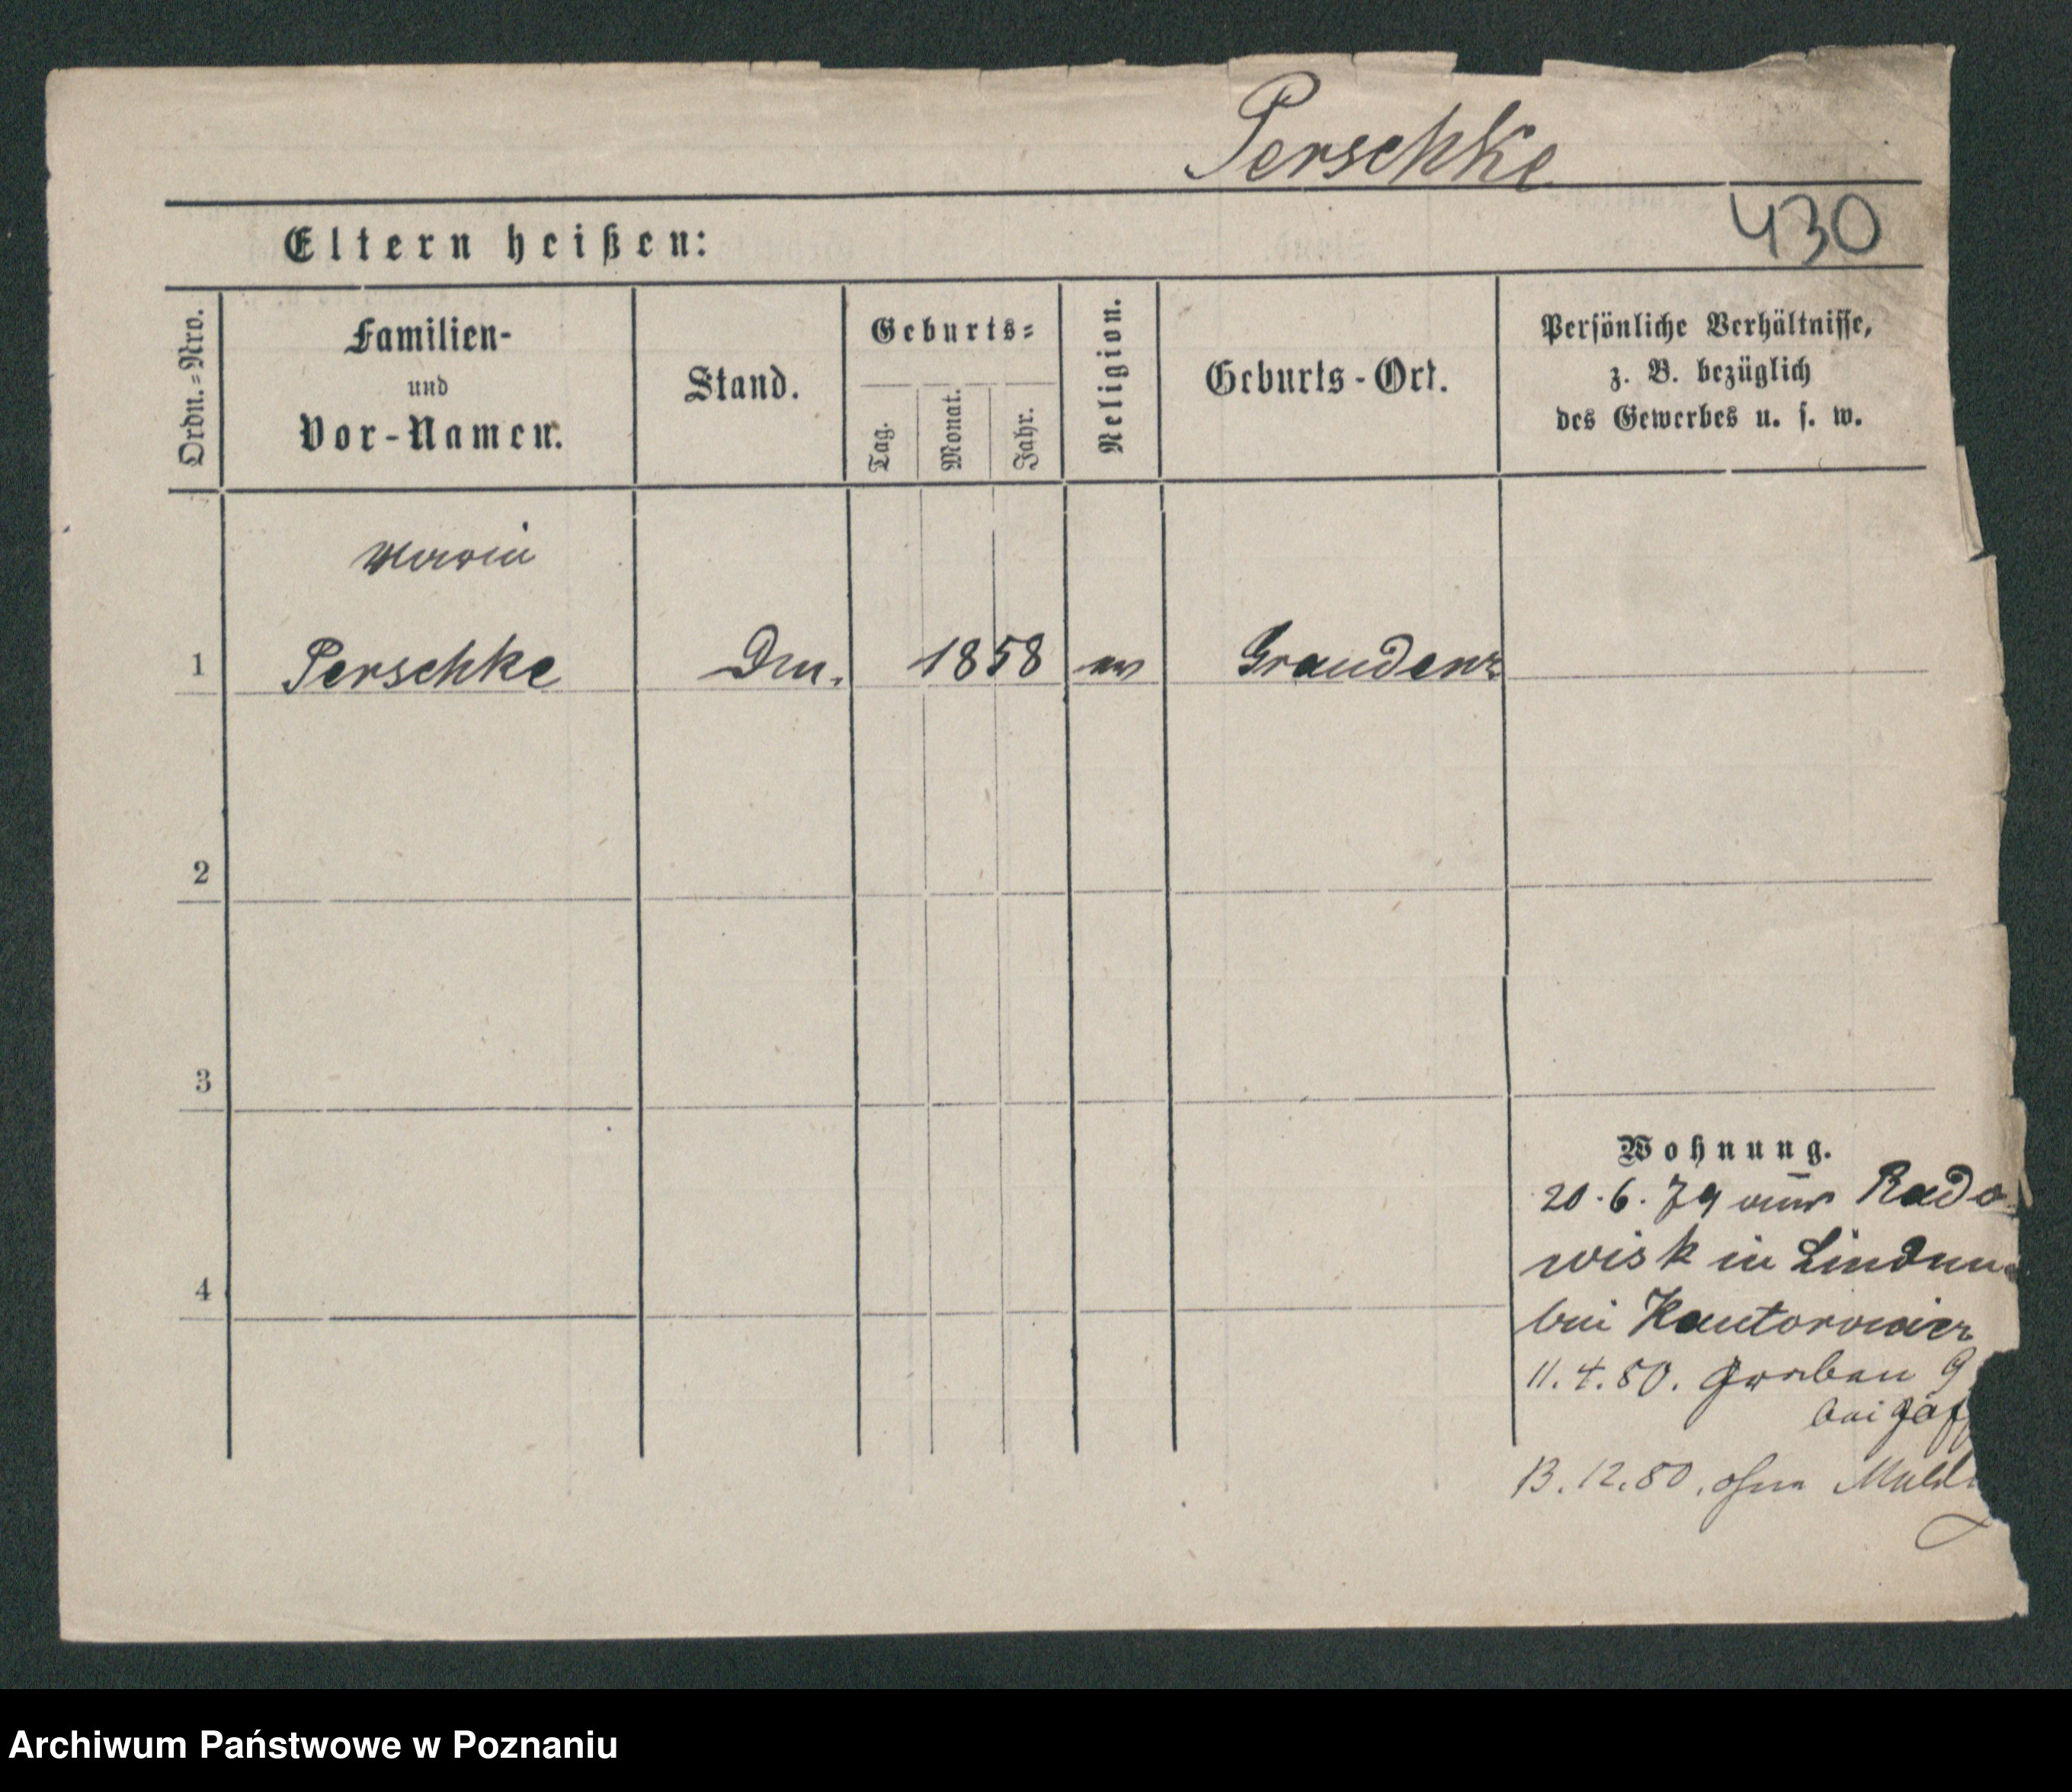 Perschke
430
Eltern heißen:
Ordn.=Nro.
Familien-
und
Vor-Namen.
Stand.
Geburts=
Tag.
Monat.
Jahr.
Religion.
Geburts-Ort.
Persönliche Verhältnisse,
z. B. bezüglich
des Gewerbes u. s. w.
1 Perschke 1858 Graudenz
2
3
4
Wohnung.
20.6.79 aus Rado
wisk in Linden
bei Kantorowicz
11.4.80.
bei
13.12.80. ohne
Archiwum Państwowe w Poznaniu